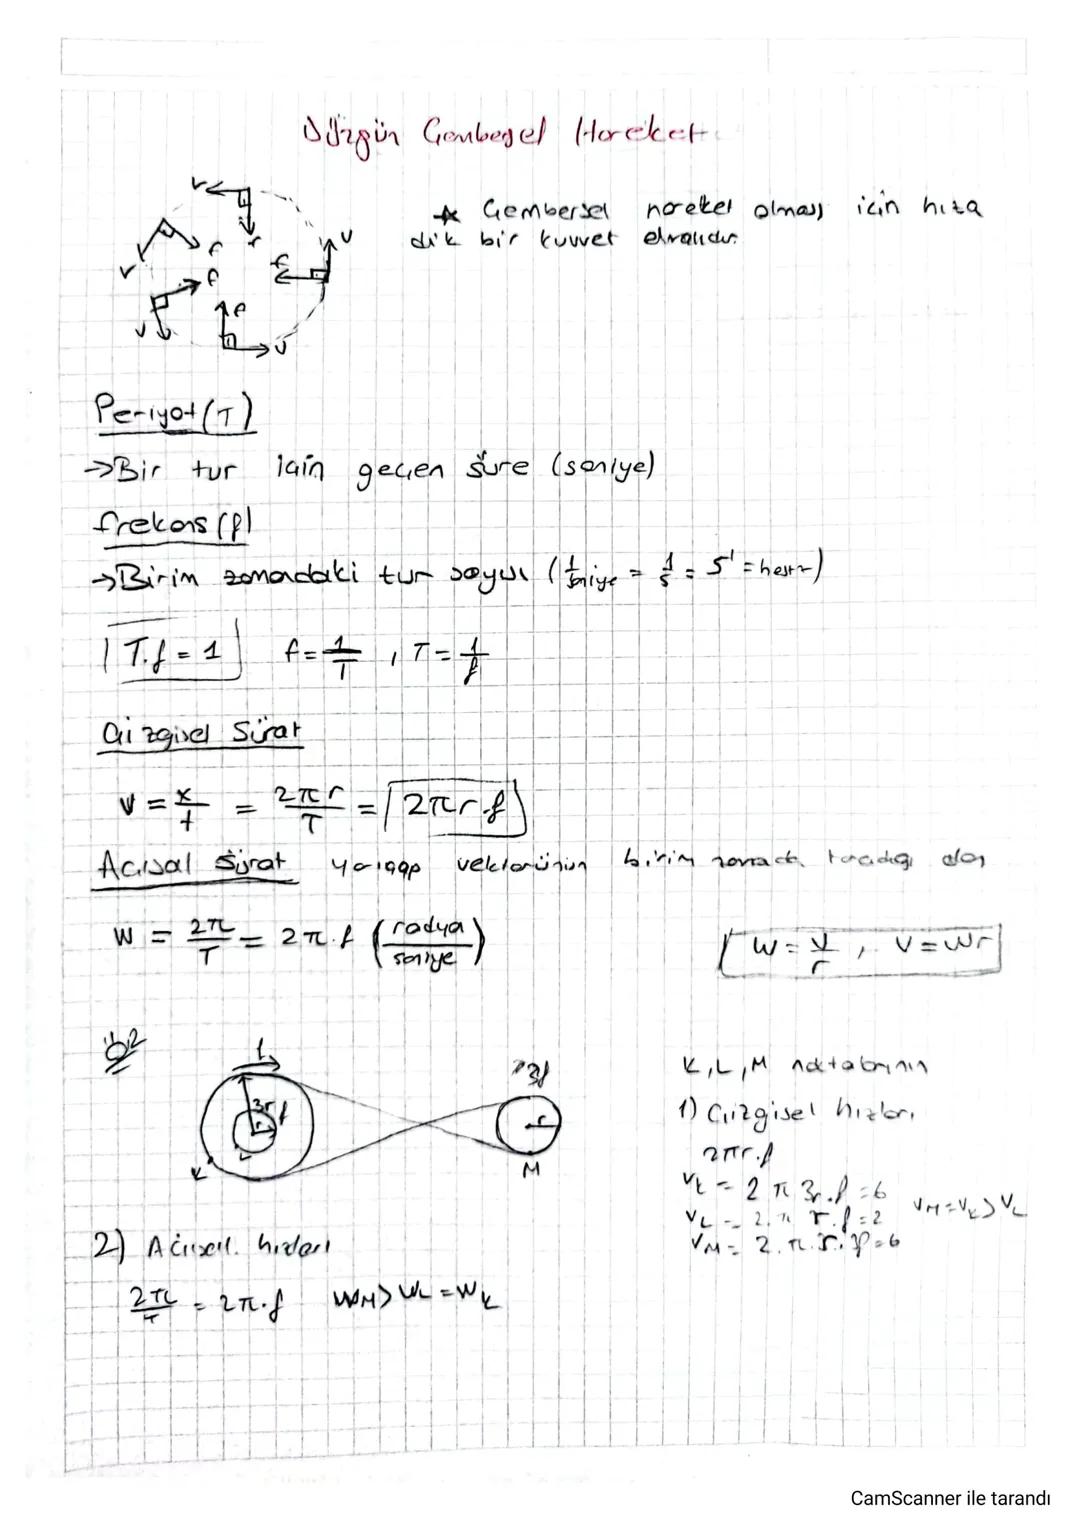 Düzgün Çembersel Hareket
* Çembersel hareket olması için hıza
dik bir kuvvet etkilidir.
V F V F V F V F V F
Periyot (T)
→Bir tur için geçen süre (saniye)
frekans (f)
→Birim zamandaki tur sayısı (1/saniye = 1/s = s⁻¹ = hertz)
T.f = 1 f = 1/T , T = 1/f
Çizgisel Sürat
V = x/t = 2πr/T = 2πr.f
Açısal Sürat yarıçap vektörünün birim zamanda taradığı açı
W = 2π/T = 2π.f (radyan/saniye)
W = V/r , V = Wr
Ö2
f 3r f r L K
3f r M
K, L, M noktalarının
1) Çizgisel hızları
2πr.f
VK = 2 π 3r.f = 6
VL = 2.π r.f = 2
VM = 2.π.r.3f = 6
VM = VK > VL
2) Açısal hızları
2π/T = 2π.f WM > WL = WK
CamScanner ile tarandı